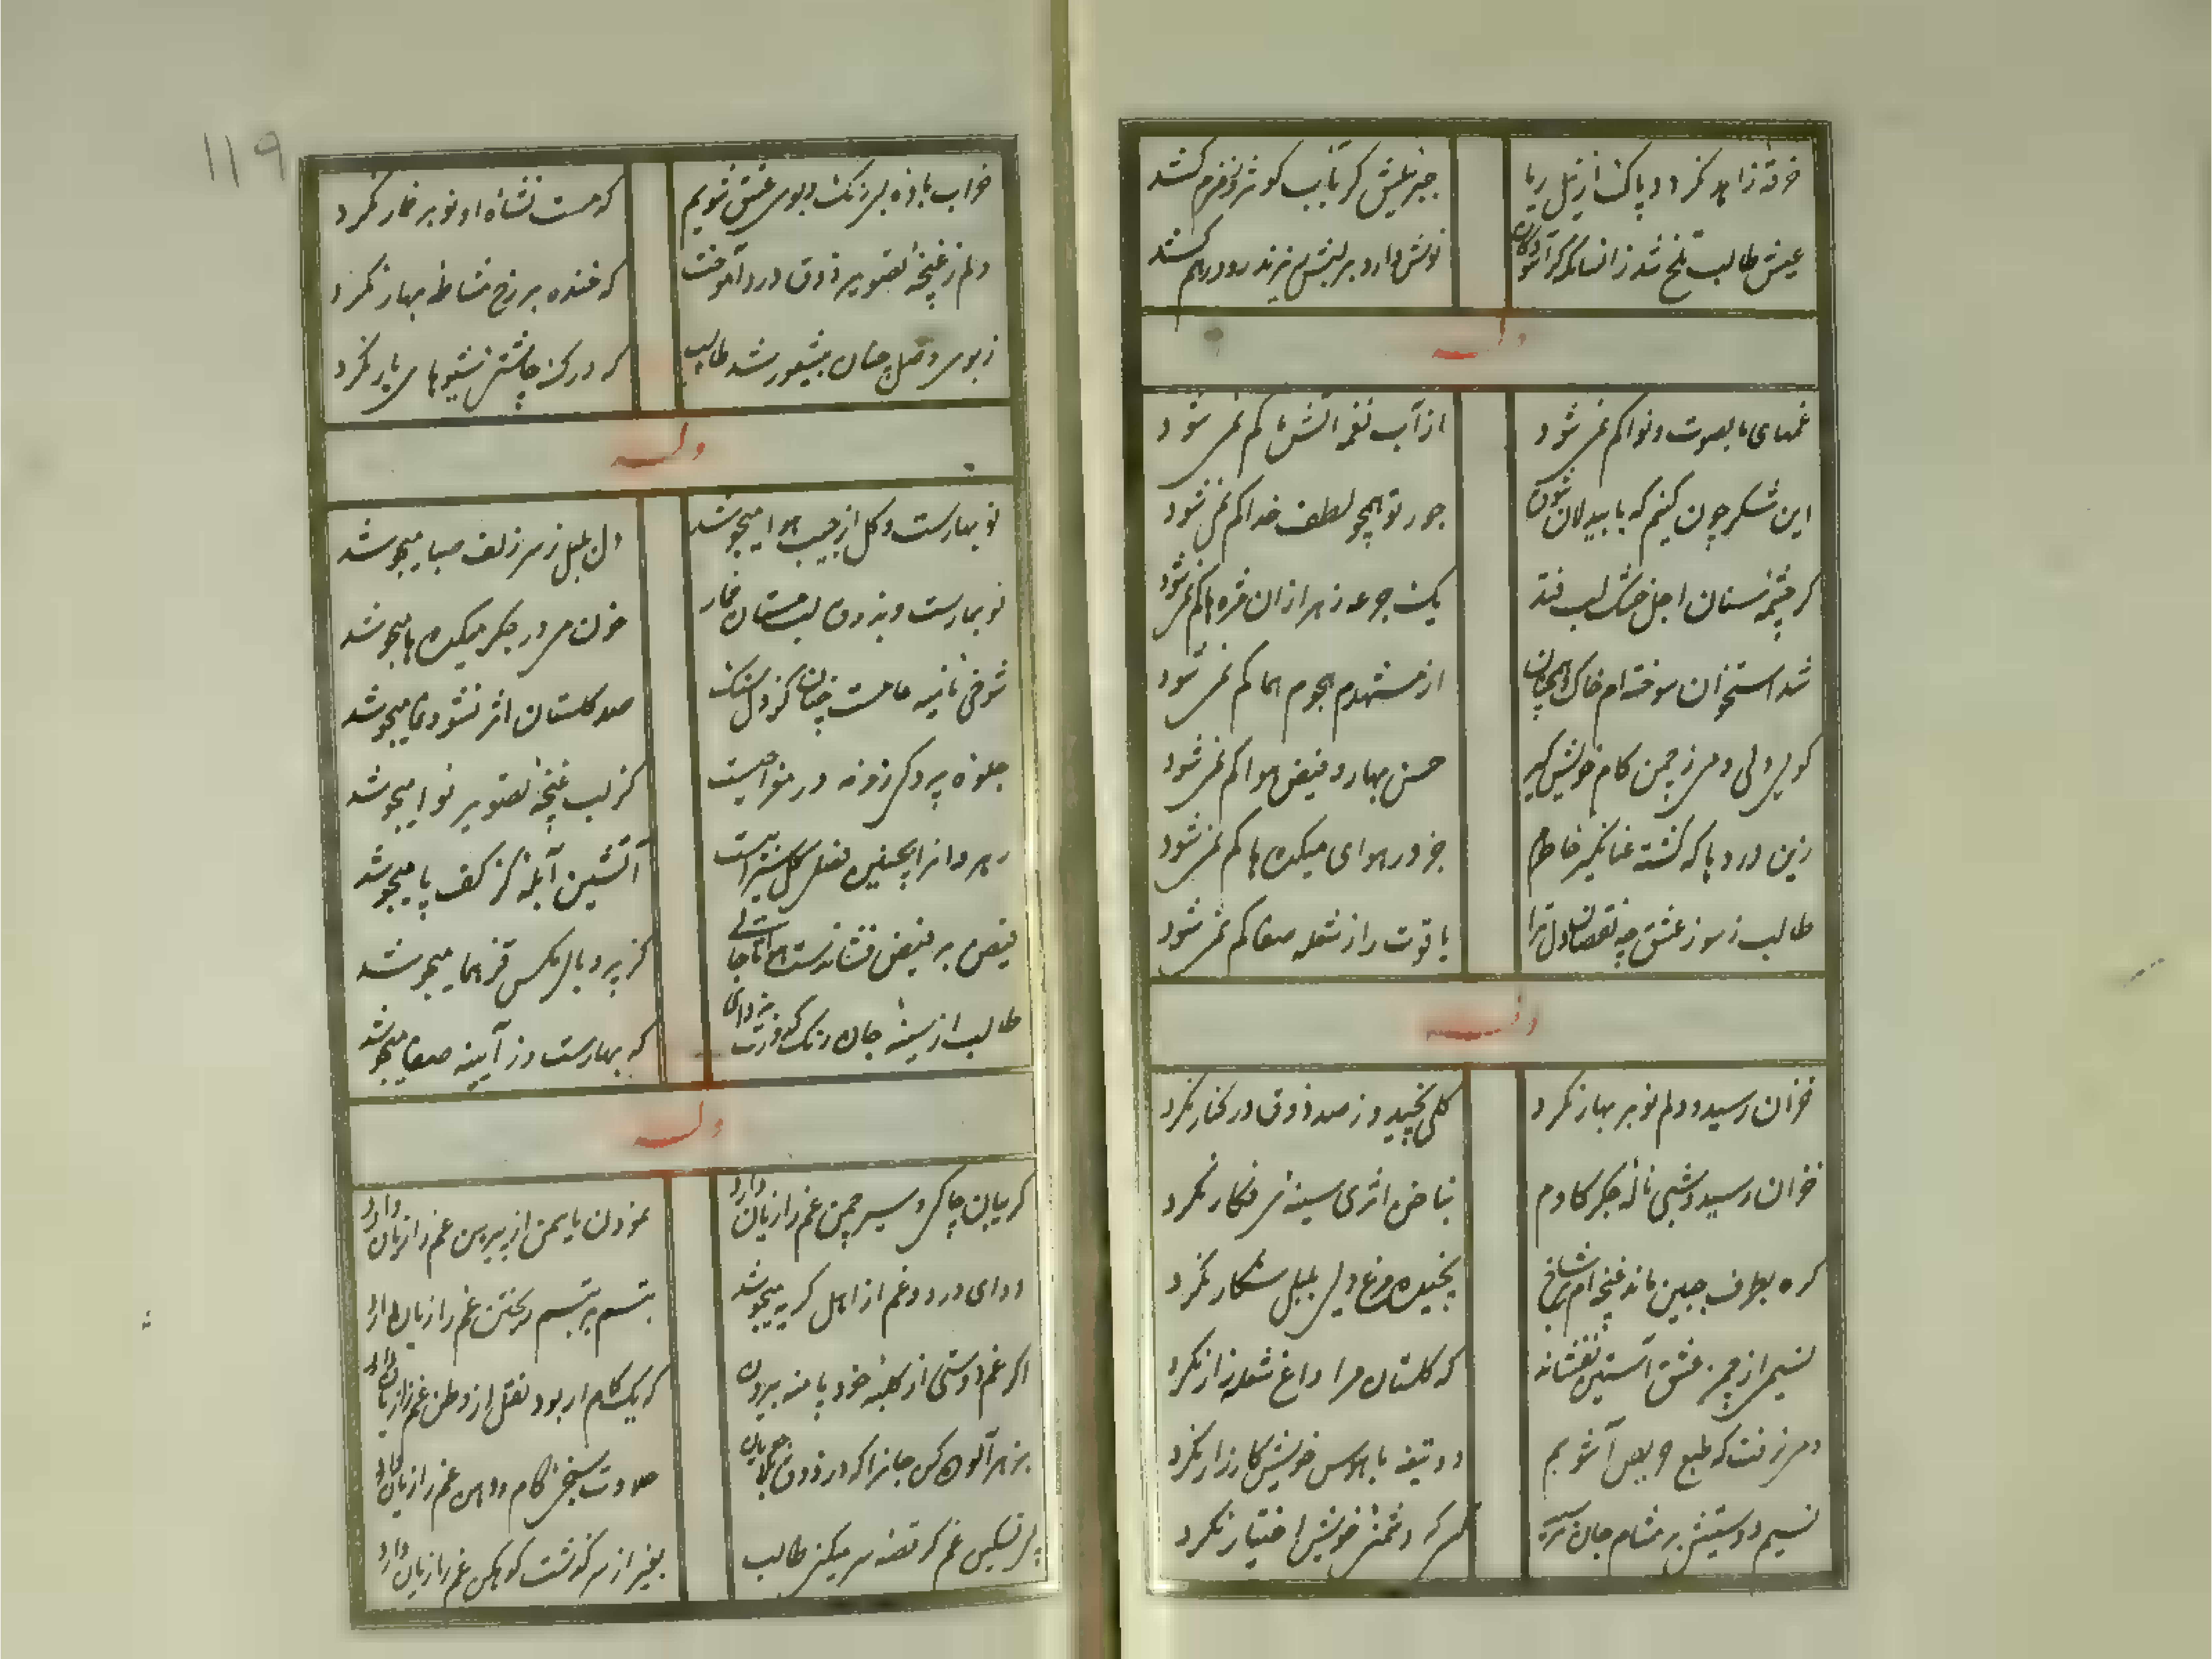 خرقه زاهد نکردد پاک از نیل ریا
جبرئیلش کر بآب کوثر و زمزم کشد
عیش طالب تلخ شد
نوش دارو بر لبش ریزند رو درهم کشد
وله
غمهای ما بصوت و نوا کم نمی شود
از آب نغمه آتش ما کم نمی شود
این شکر چون کنیم که با بیدلان شوق
جور تو همچو لطف خدا کم نمی شود
کر چشمه ستان اجل خشک لب فتد
یک جرعه زهر ازان مژه ها کم نمی شود
شد استخوان سوخته ام خاک همچنان
از مشهدم هجوم هما کم نمی شود
کو بیدلی دمی ز چمن کام خویش کیر
حسن بهار و فیض هوا کم نمی شود
زین دردها که کشته عنانکیر خاطرم
جز در هوای میکده ها کم نمی شود
طالب ز سوز عشق چه نقصان دل ترا
یاقوت را ز شعله صفا کم نمی شود
وله
خزان رسید و دلم نوبر بهار نکرد
کلی نچید و ز صد ذوق در کنار نکرد
خزان رسید و شبی ناله جکر کاوم
نیاض اثری سینه فکار نکرد
کره بطرف جبین ماند غنچه ام
نچیده مرغ دلی بلبلی شکار نکرد
نسیمی از چمن عشق آستین نفشاند
که کلستان مرا داغ شعله زار نکرد
دمی نرفت که طبع آشوبم
دو تیغه با هوس خویش کارزار نکرد
نسیم دوستیش بر مشام جان نرسید
کسی که دشمنی خویش اختیار نکرد
۱۱۹
خراب باده بی رنک و بوی عشق شویم
که مست نشاه او نوبر خمار نکرد
دلم ز غنچه تصویر ذوق درد آموخت
که خنده بر رخ نشاط بهار نکرد
ز بوی وصل چنان بیشعور شد طالب
که درک چاشنی شیوهای یار نکرد
وله
نوبهارست و کل از جیب هوا میجوشد
دل بلبل ز سر زلف صبا میجوشد
نوبهارست و بذوق لب مستان خمار
خون می در جکر میکده ها میجوشد
شوخی نامیه عامست چنان کز دل سنک
صد کلستان اثر نشو و نما میجوشد
جلوه پردکی
کز لب غنچه تصویر نوا میجوشد
رهروانرا
آتشین آبله کز کف پا میجوشد
فیض بر فیض فشاندست
کز پر و بال مکس فر هما میجوشد
طالب از سینه جان رنک کدورت بزدای
که بهارست وز آیینه صفا میجوشد
وله
کریبان چاکی و سیر چمن غم را زیان دارد
نمودن یاسمن از پیرهن غم را زیان دارد
دوای درد و غم از اهل کریه میجوشد
تبسم بر تبسم ریختن غم را زیان دارد
اکر غم دوستی از کلبه خود پا منه بیرون
که یک کام ار بود نقل از وطن غم را زیان دارد
بزهر آلوده کن جانرا که در ذوق
حلاوت سنجی کام و دهن غم را زیان دارد
پی تسکین غم کر قصه سر میکنی طالب
بغیر از سرکذشت کوهکن غم را زیان دارد